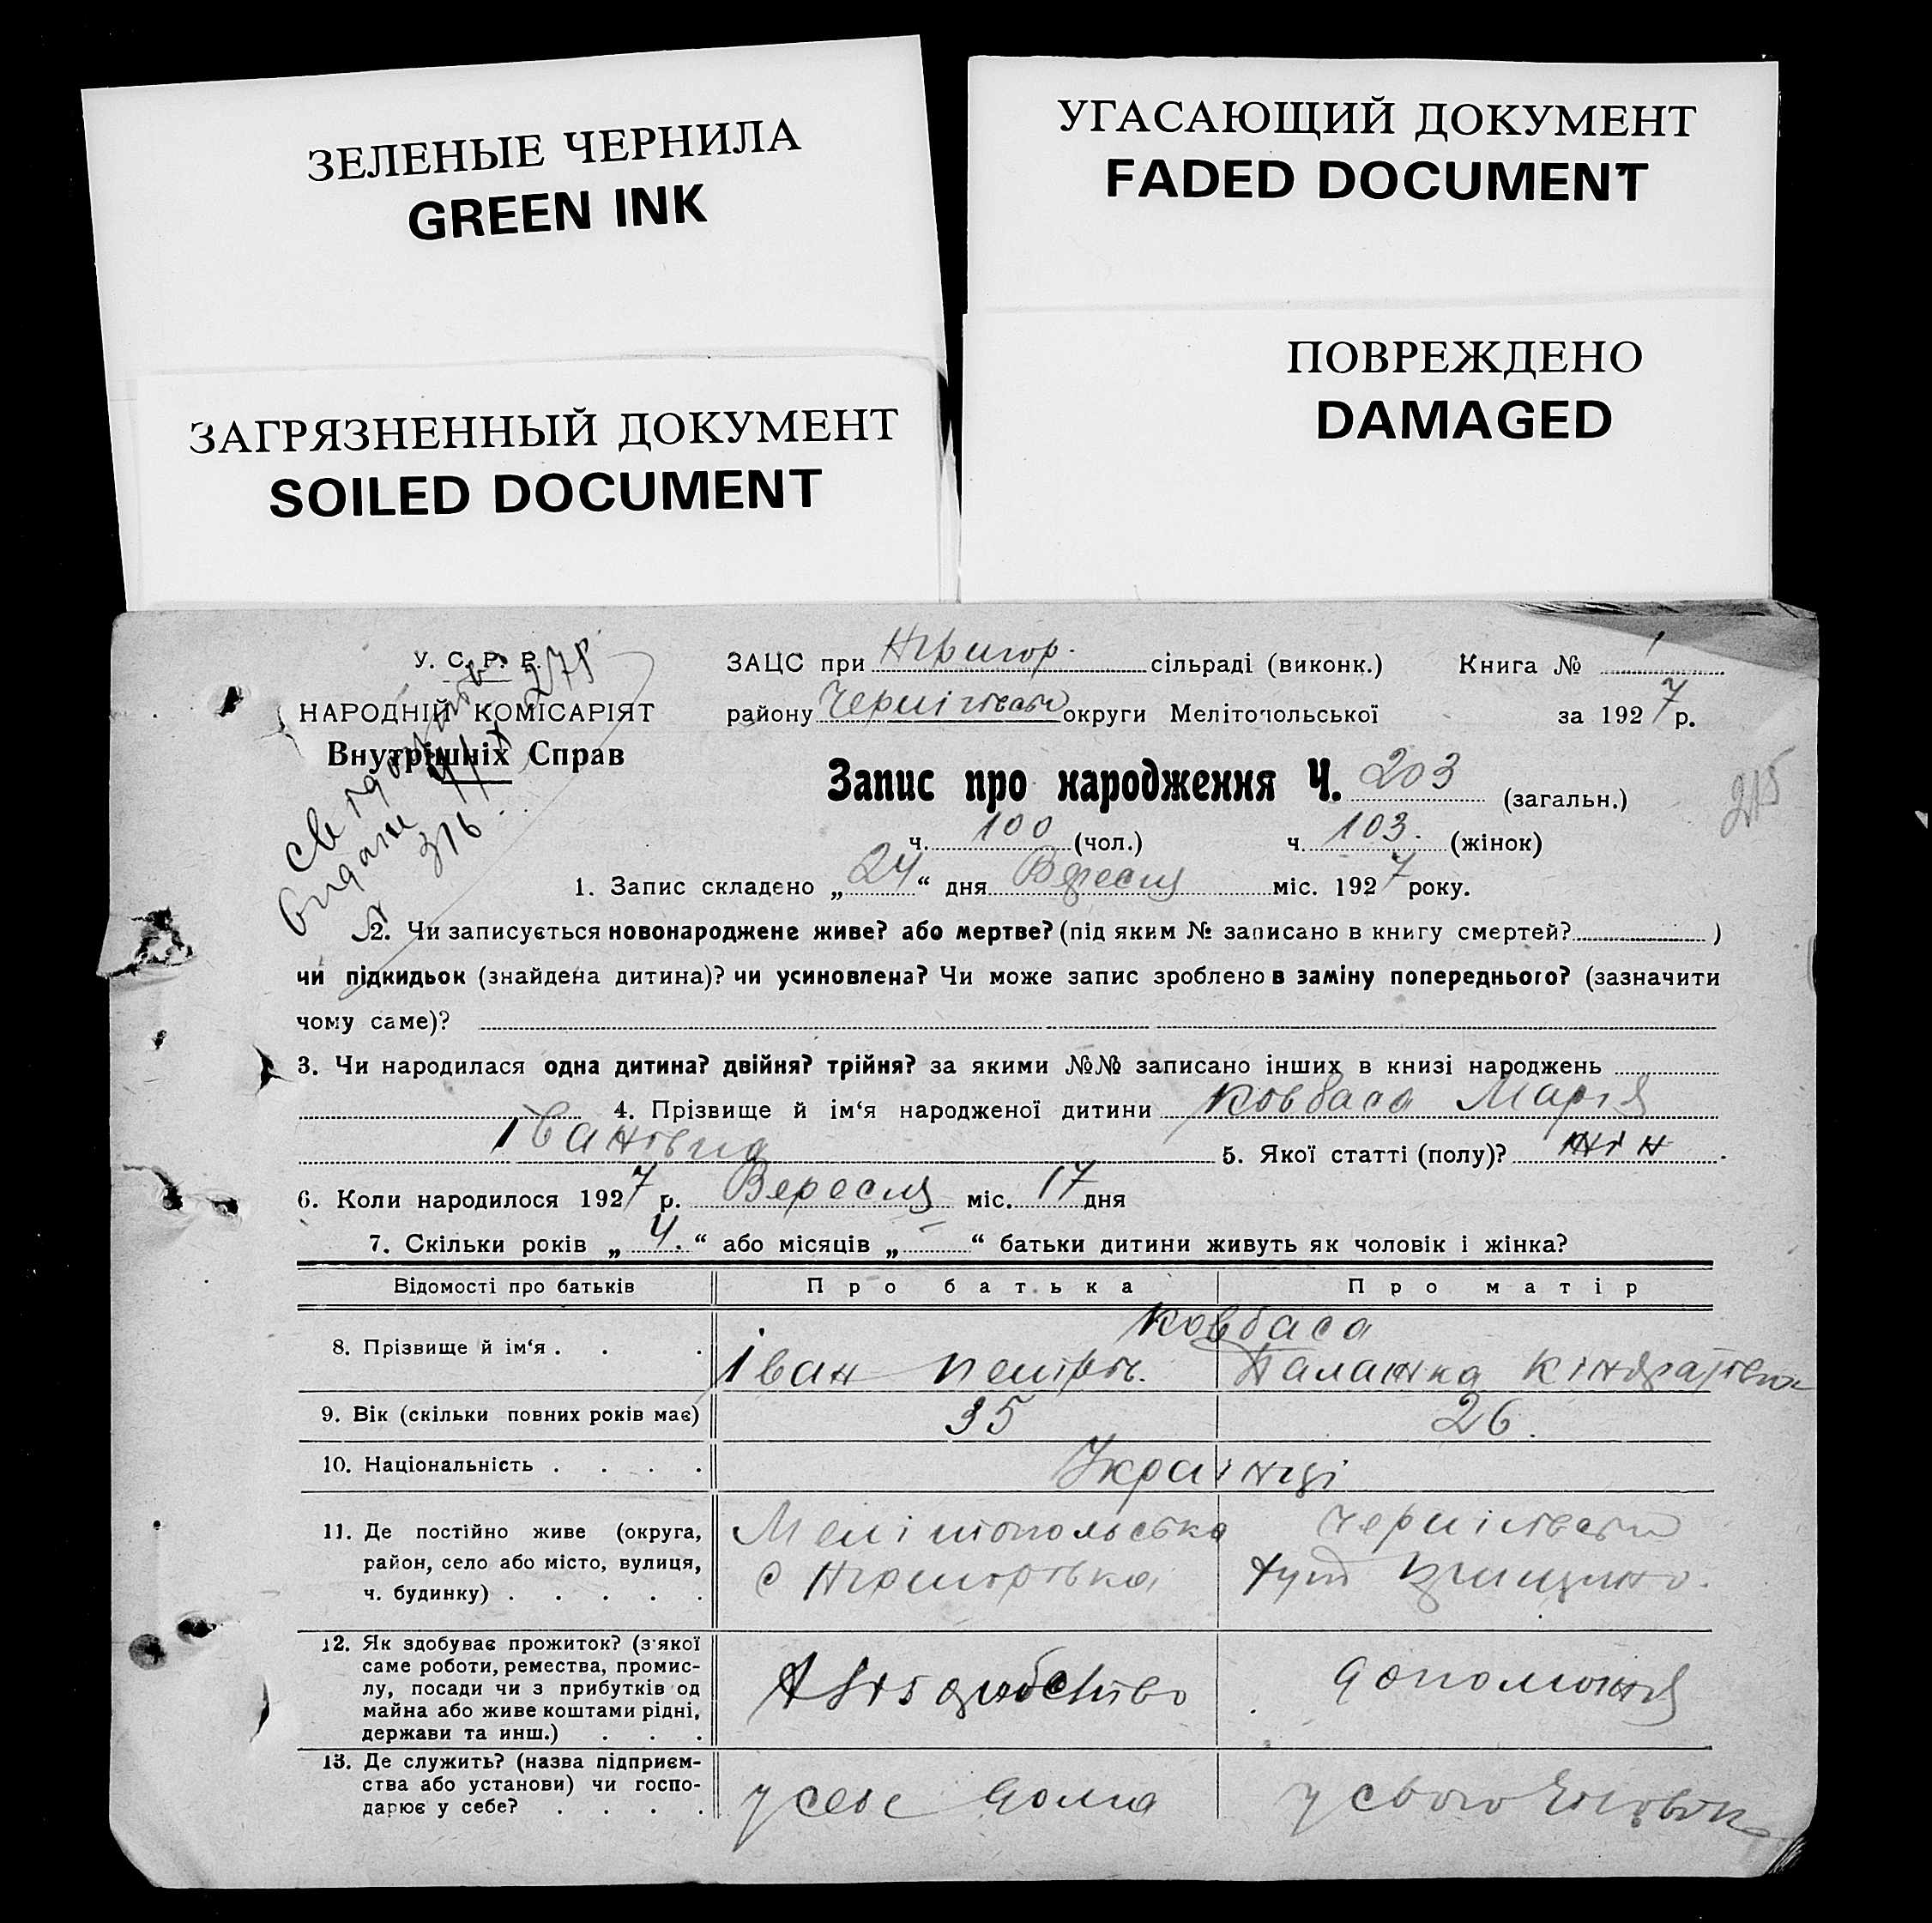 ЗЕЛЕНЫЕ ЧЕРНИЛА
GREEN INK
УГАСАЮЩИЙ ДОКУМЕНТ
FADED DOCUMENT
ЗАГРЯЗНЕННЫЙ ДОКУМЕНТ
SOILED DOCUMENT
ПОВРЕЖДЕНО
DAMAGED
У. С. Р. Р.
НАРОДНІЙ КОМІСАРІЯТ
Внутрішніх Справ
видане
316
278
ЗАЦС при Нгригор. сільраді (виконк.) Книга № 1
району округи Мелітопольської за 1927 р.
Запис про народження Ч. 203 (загальн.)
215
ч. 100 (чол.) ч. 103. (жінок)
1. Запис складено „24“ дня Вересня міс. 1927 року.
2. Чи записується новонароджене живе? або мертве? (під яким № записано в книгу смертей? )
чи підкидьок (знайдена дитина)? чи усиновлена? Чи може запис зроблено в заміну попереднього? (зазначити
чому саме)?
3. Чи народилася одна дитина? двійня? трійня? за якими №№ записано інших в книзі народжень
4. Прізвище й ім‘я народженої дитини Ковбаса Марія
Іванівна 5. Якої статті (полу)? жін
6. Коли народилося 1927 р. Вересня міс. 17 дня
7. Скільки років „4.“ або місяців „–“ батьки дитини живуть як чоловік і жінка?
Відомості про батьків Про батька Про матір
8. Прізвище й ім‘я . . . Ковбаса
Іван Петров. Палажка Кіндратівна
9. Вік (скільки повних років має) 35 26.
10. Національність . . . . Українці
11. Де постійно живе (округа, район, село або місто, вулиця, ч. будинку) . . . . . Мелітопольська
с Нгригорівка
12. Як здобуває прожиток? (з якої саме роботи, ремества, промислу, посади чи з прибутків од майна або живе коштами рідні, держави та инш.) . . .
13. Де служить? (назва підприємства або установи) чи господарює у себе? . . . . у себе дома у свого чоловіка